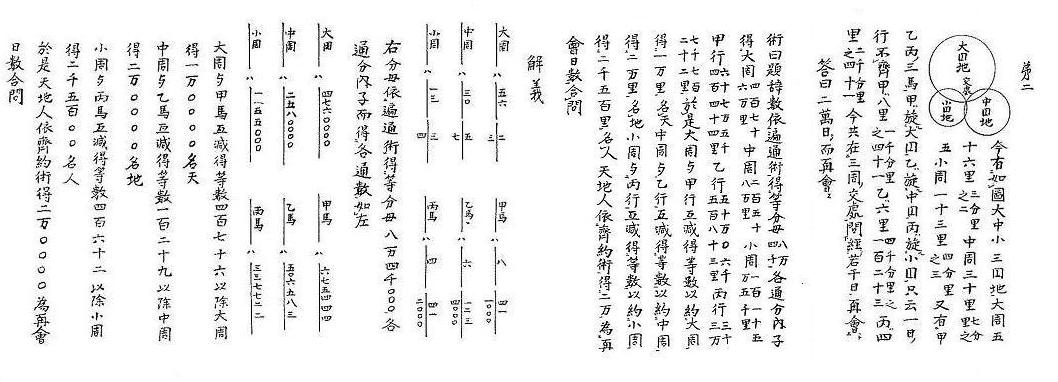 第二
大円地
交處
小円地
中円地
今有如圖大中小三円地大周五
十六里三分里之二中周三十里七分里之
五小周一十三里四分里之三又有甲
乙丙三馬甲旋大円乙旋中円丙旋小円只云一日
行不齊甲八里一千分里之四十一乙六里四千分里之一百二十三丙四
里二千分里之四十一今共在三周交處問經若干日再會
答曰二萬日而再會
術曰題辞數依遍通術得等分母八万四千各通分内子
得大周四百七十六万里中周二百五十八万里小周一百一十五万五千里
甲行六十七万五千四百四十四里乙行五十万六千五百八十三里丙行三十三万
七千七百二十二里於是大周与甲行互減得等數以約大周
得一万里名天中周与乙行互減得等數以約中周
得二万里名地小周与丙行互減得等數以約小周
得二千五百里名人天地人依齊約術得二万為再
會日數合問
解義
大周 八 五六 二 三
甲馬 八 八 四一 一〇〇〇
中周 八 三〇 五 七
乙馬 八 六 一二三 四〇〇〇
小周 八 一三 三 四
丙馬 八 四 四一 二〇〇〇
右分母依遍通術得等分母八万四千〇〇〇各
通分内子而得各通數如左
大周 八 四七六〇〇〇〇
甲馬 八 六七五四四四
中周 八 二五八〇〇〇〇
乙馬 八 五〇六五八三
小周 八 一一五五〇〇〇
丙馬 八 三三七七二二
大周与甲馬互減得等數四百七十六以除大周
得一万〇〇〇〇名天
中周与乙馬互減得等數一百二十九以除中周
得二万〇〇〇〇名地
小周与丙馬互減得等數四百六十二以除小周
得二千五百〇〇名人
於是天地人依齊約術得二万〇〇〇〇為再會
日數合問